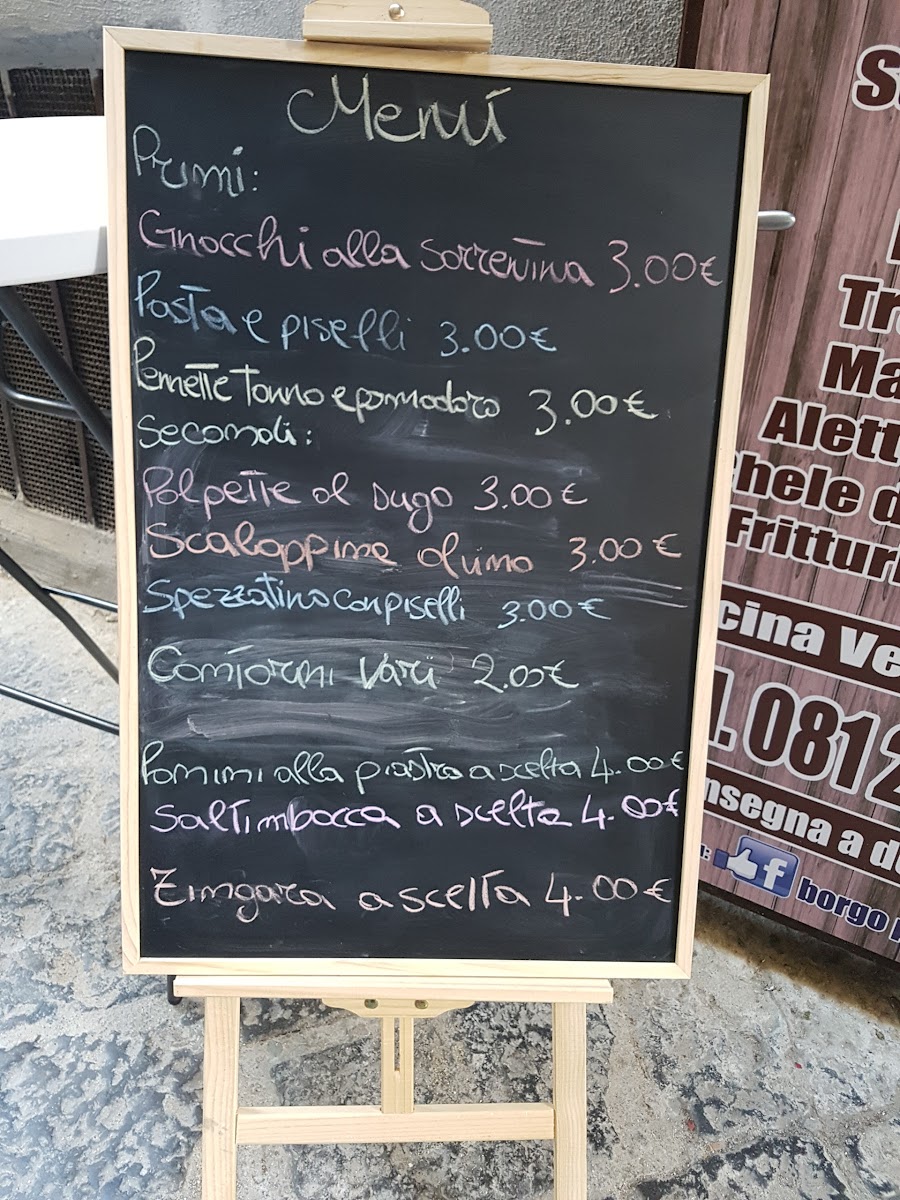 Menú
Primi:
Gnocchi alla sorrentina 3.00€
Pasta e piselli 3.00€
Pennette tonno e pomodoro 3.00€
Secondi:
Polpette al sugo 3.00€
Scaloppine al vino 3.00€
Spezzatino con piselli 3.00€
Contorni vari 2.00€
Panini alla piastra a scelta 4.00€
Saltimbocca a scelta 4.00€
Zingara a scelta 4.00€
Tr
Ma
Alett
hele d
Frittur
cina Ve
l. 081 2
nsegna a d
f borgo